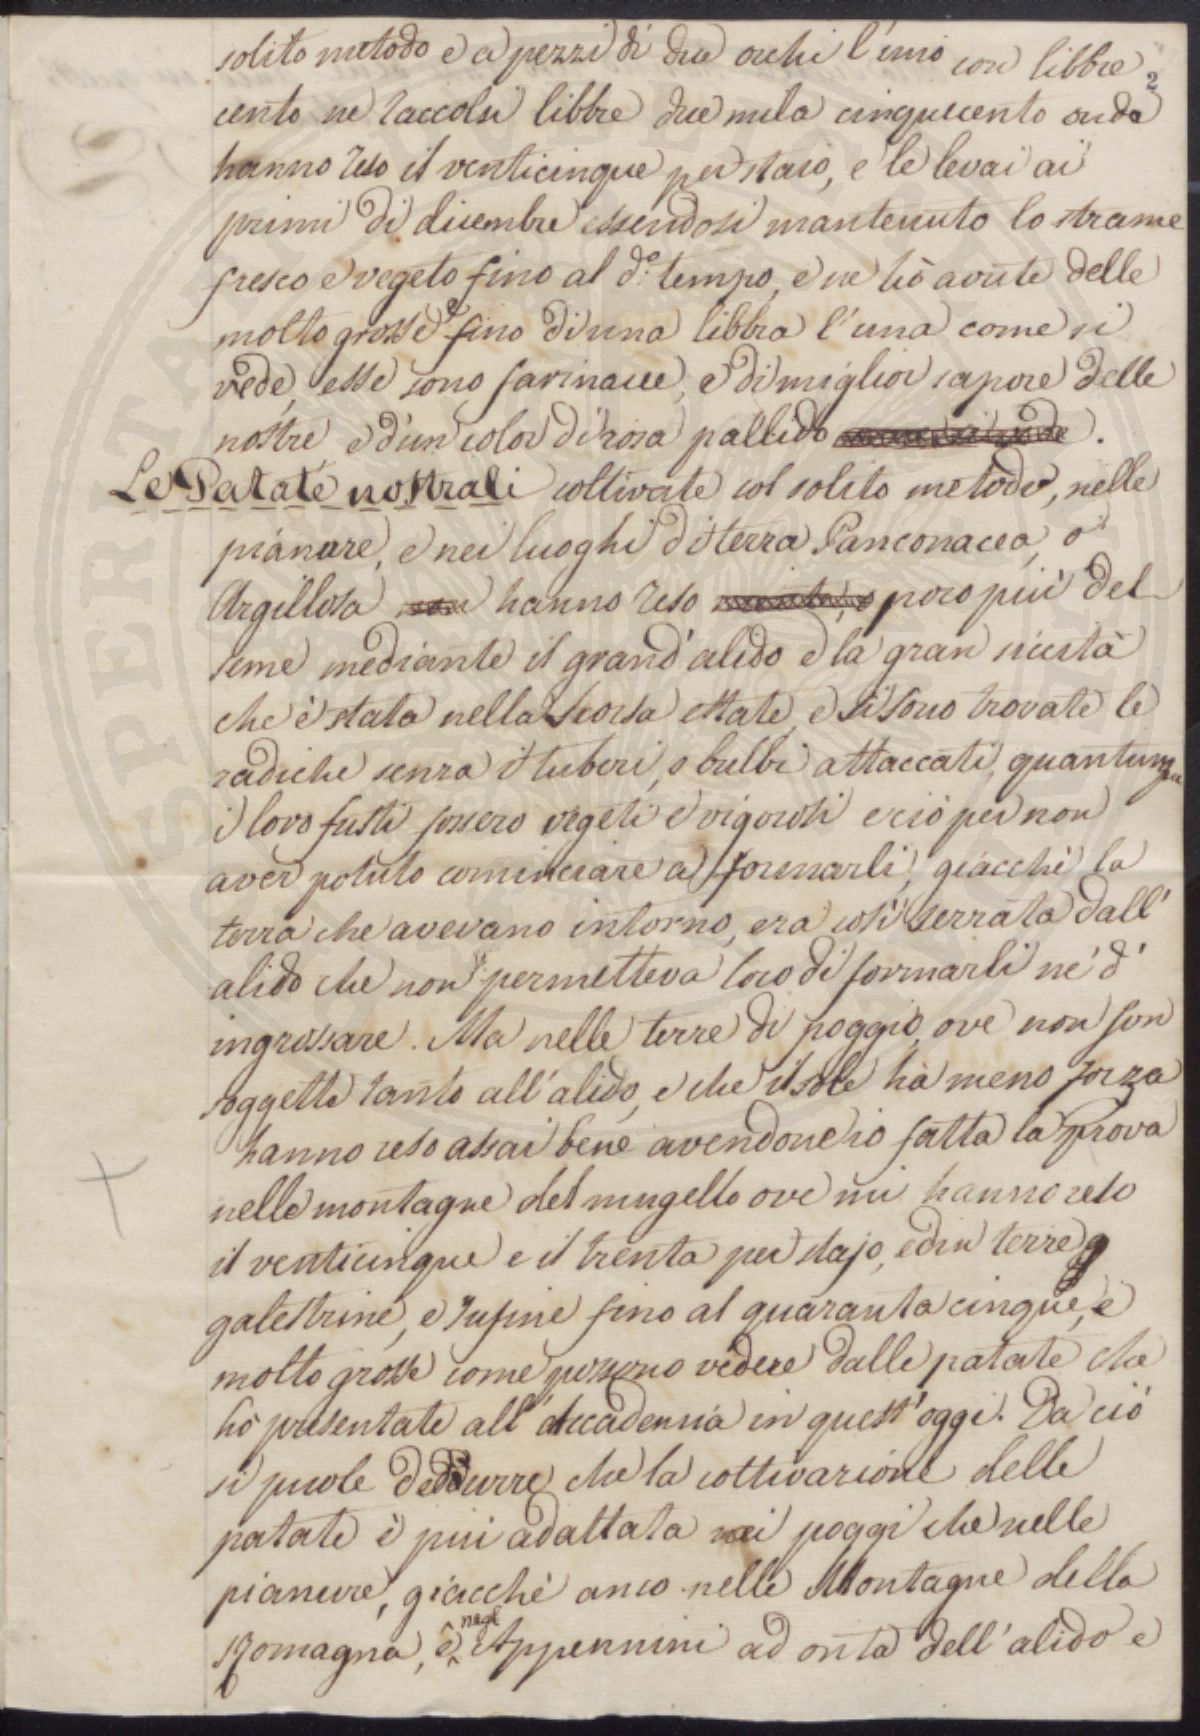 solito metodo e a pezzi di due occhi l'uno con libbre 2
cento ne raccolsi libbre due mila cinquecento onde
hanno reso il venticinque per staio, e le levai ai
primi di dicembre essendosi mantenuto lo strame
fresco e vegeto fino al d.o tempo, e ne hò avute delle
molto grosse e fino di una libbra l'una come si
vede, esse sono farinacee, e di miglior sapore delle
nostre e d'un color di rosa pallido come si vede.
Le Patate nostrali coltivate col solito metodo, nelle
pianure, e nei luoghi di terra Panconacea, o
Argillosa non hanno reso poco più del
seme mediante il grand'alido e la gran siccità
che è stata nella scorsa estate, e si sono trovate le
radiche senza i tuberi, o bulbi attaccati, quantunque
i loro fusti fossero vegeti e vigorosi e ciò per non
aver potuto cominciare a formarli, giacchè la
terra che avevano intorno, era così serrata dall'
alido che non permetteva loro di formarli ne' d'
ingrossare. Ma nelle terre di poggio, ove non son
soggette tanto all'alido, e che il sole hà meno forza
hanno reso assai bene avendone io fatta la prova
nelle montagne del mugello ove mi hanno reso
il venticinque e il trenta per stajo, ed in terre
galestrine, e rufine fino al quaranta cinque, e
molto grosse come possono vedere dalle patate che
hò presentate all'Accademia in quest'oggi. Da ciò
si puole deddurre che la coltivazione delle
patate è più adattata nei poggi che nelle
pianure, giacchè anco nelle Montagne della
Romagna, e negl'Appennini ad onta dell'alido e